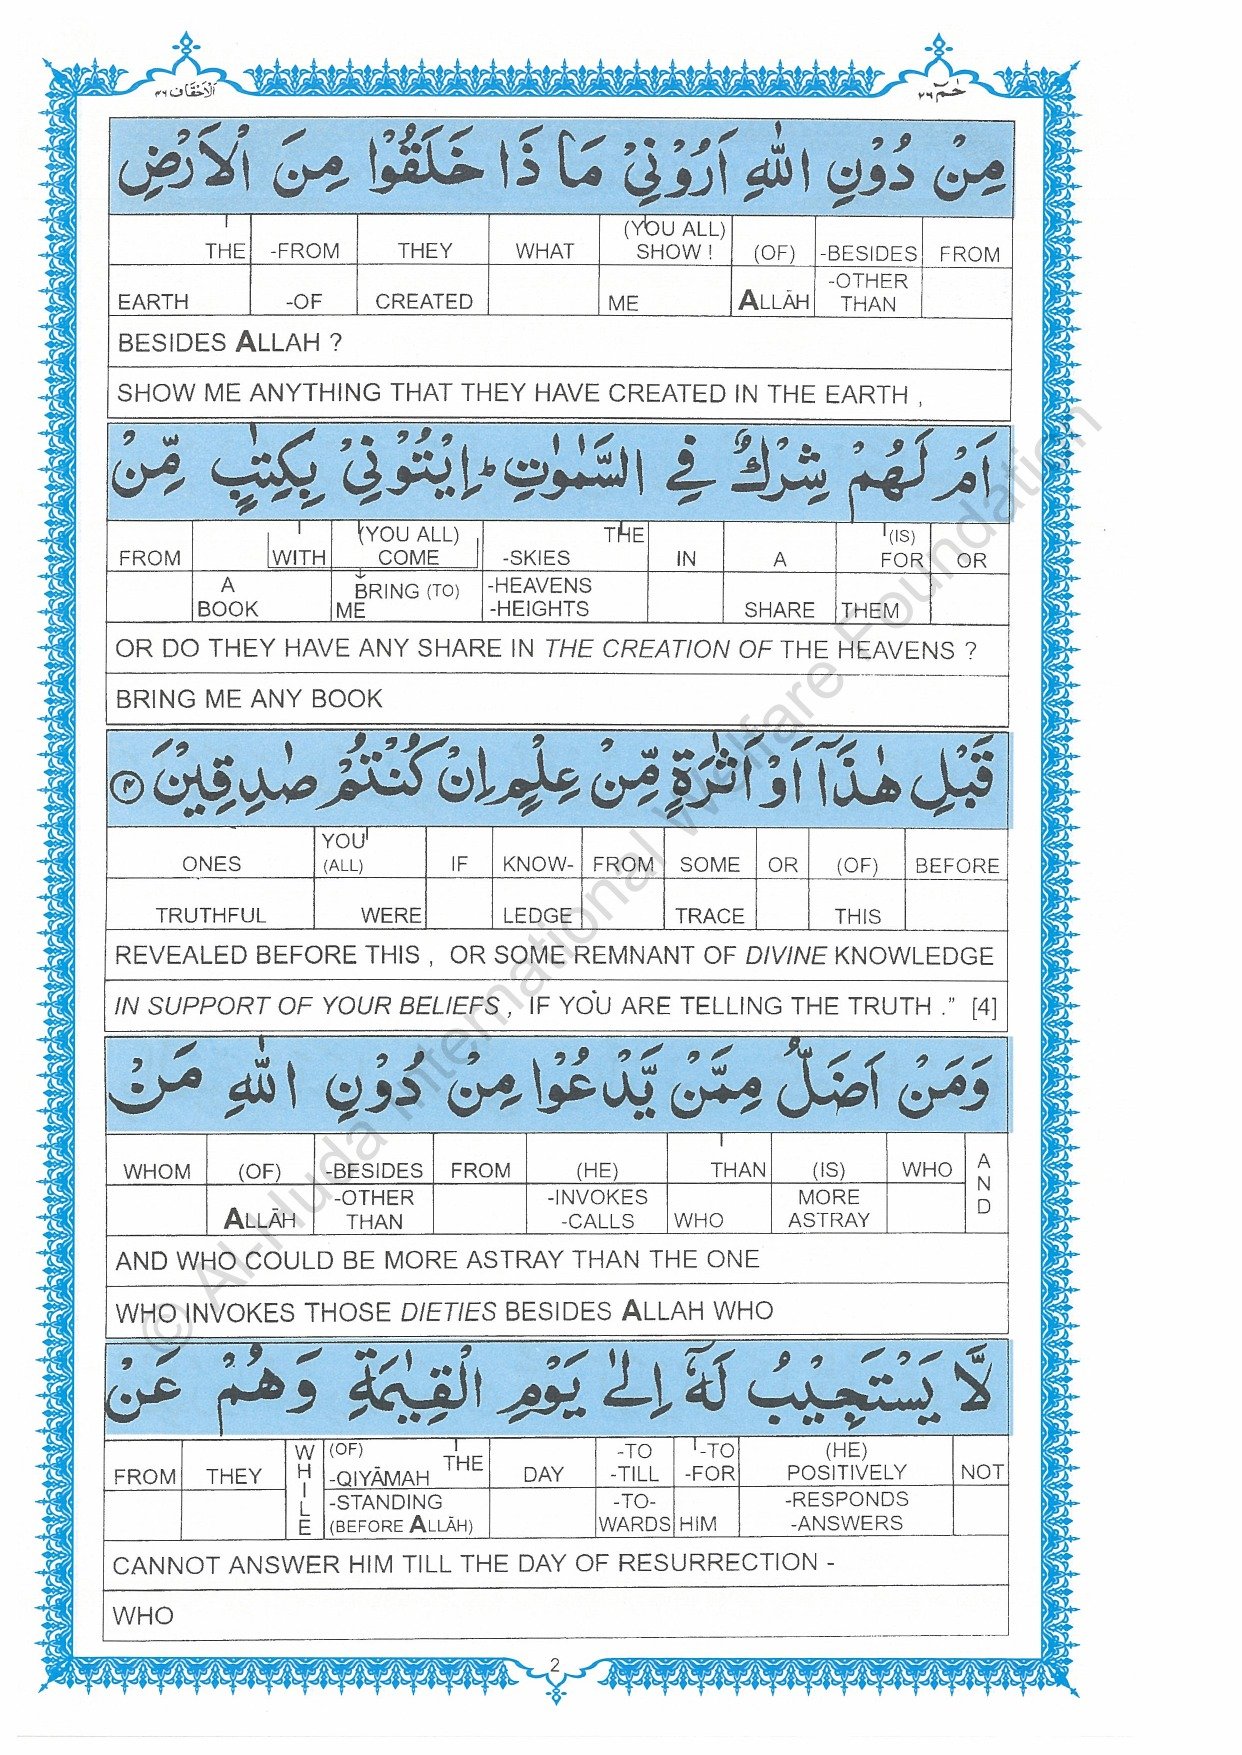 الاحقاف ٤٦
حٰمٓ ٢٦
مِنْ دُوْنِ اللّٰهِ اَرُوْنِیْ مَا ذَا خَلَقُوْا مِنَ الْاَرْضِ
THE -FROM THEY WHAT (YOU ALL) SHOW ! (OF) -BESIDES FROM
EARTH -OF CREATED ME ALLĀH -OTHER THAN
BESIDES ALLAH ?
SHOW ME ANYTHING THAT THEY HAVE CREATED IN THE EARTH ,
اَمْ لَهُمْ شِرْكٌ فِی السَّمٰوٰتِ ؕ اِیْتُوْنِیْ بِكِتٰبٍ مِّنْ
FROM WITH (YOU ALL) COME -SKIES THE IN A (IS) FOR OR
A BOOK BRING (TO) ME -HEAVENS -HEIGHTS SHARE THEM
OR DO THEY HAVE ANY SHARE IN THE CREATION OF THE HEAVENS ?
BRING ME ANY BOOK
قَبْلِ هٰذَاۤ اَوْ اَثٰرَةٍ مِّنْ عِلْمٍ اِنْ كُنْتُمْ صٰدِقِیْنَ ۴
ONES YOU (ALL) IF KNOW- FROM SOME OR (OF) BEFORE
TRUTHFUL WERE LEDGE TRACE THIS
REVEALED BEFORE THIS , OR SOME REMNANT OF DIVINE KNOWLEDGE
IN SUPPORT OF YOUR BELIEFS , IF YOU ARE TELLING THE TRUTH ." [4]
وَمَنْ اَضَلُّ مِمَّنْ یَّدْعُوْا مِنْ دُوْنِ اللّٰهِ مَنْ
WHOM (OF) -BESIDES FROM (HE) THAN (IS) WHO AND
ALLĀH -OTHER THAN -INVOKES -CALLS WHO MORE ASTRAY
AND WHO COULD BE MORE ASTRAY THAN THE ONE
WHO INVOKES THOSE DIETIES BESIDES ALLAH WHO
لَّا یَسْتَجِیْبُ لَهٗۤ اِلٰی یَوْمِ الْقِیٰمَةِ وَهُمْ عَنْ
FROM THEY WHILE (OF) -QIYĀMAH THE DAY -TO -TILL -TO -FOR (HE) POSITIVELY NOT
-STANDING (BEFORE ALLĀH) -TO- WARDS HIM -RESPONDS -ANSWERS
CANNOT ANSWER HIM TILL THE DAY OF RESURRECTION -
WHO
2
© Al-Huda International Welfare Foundation